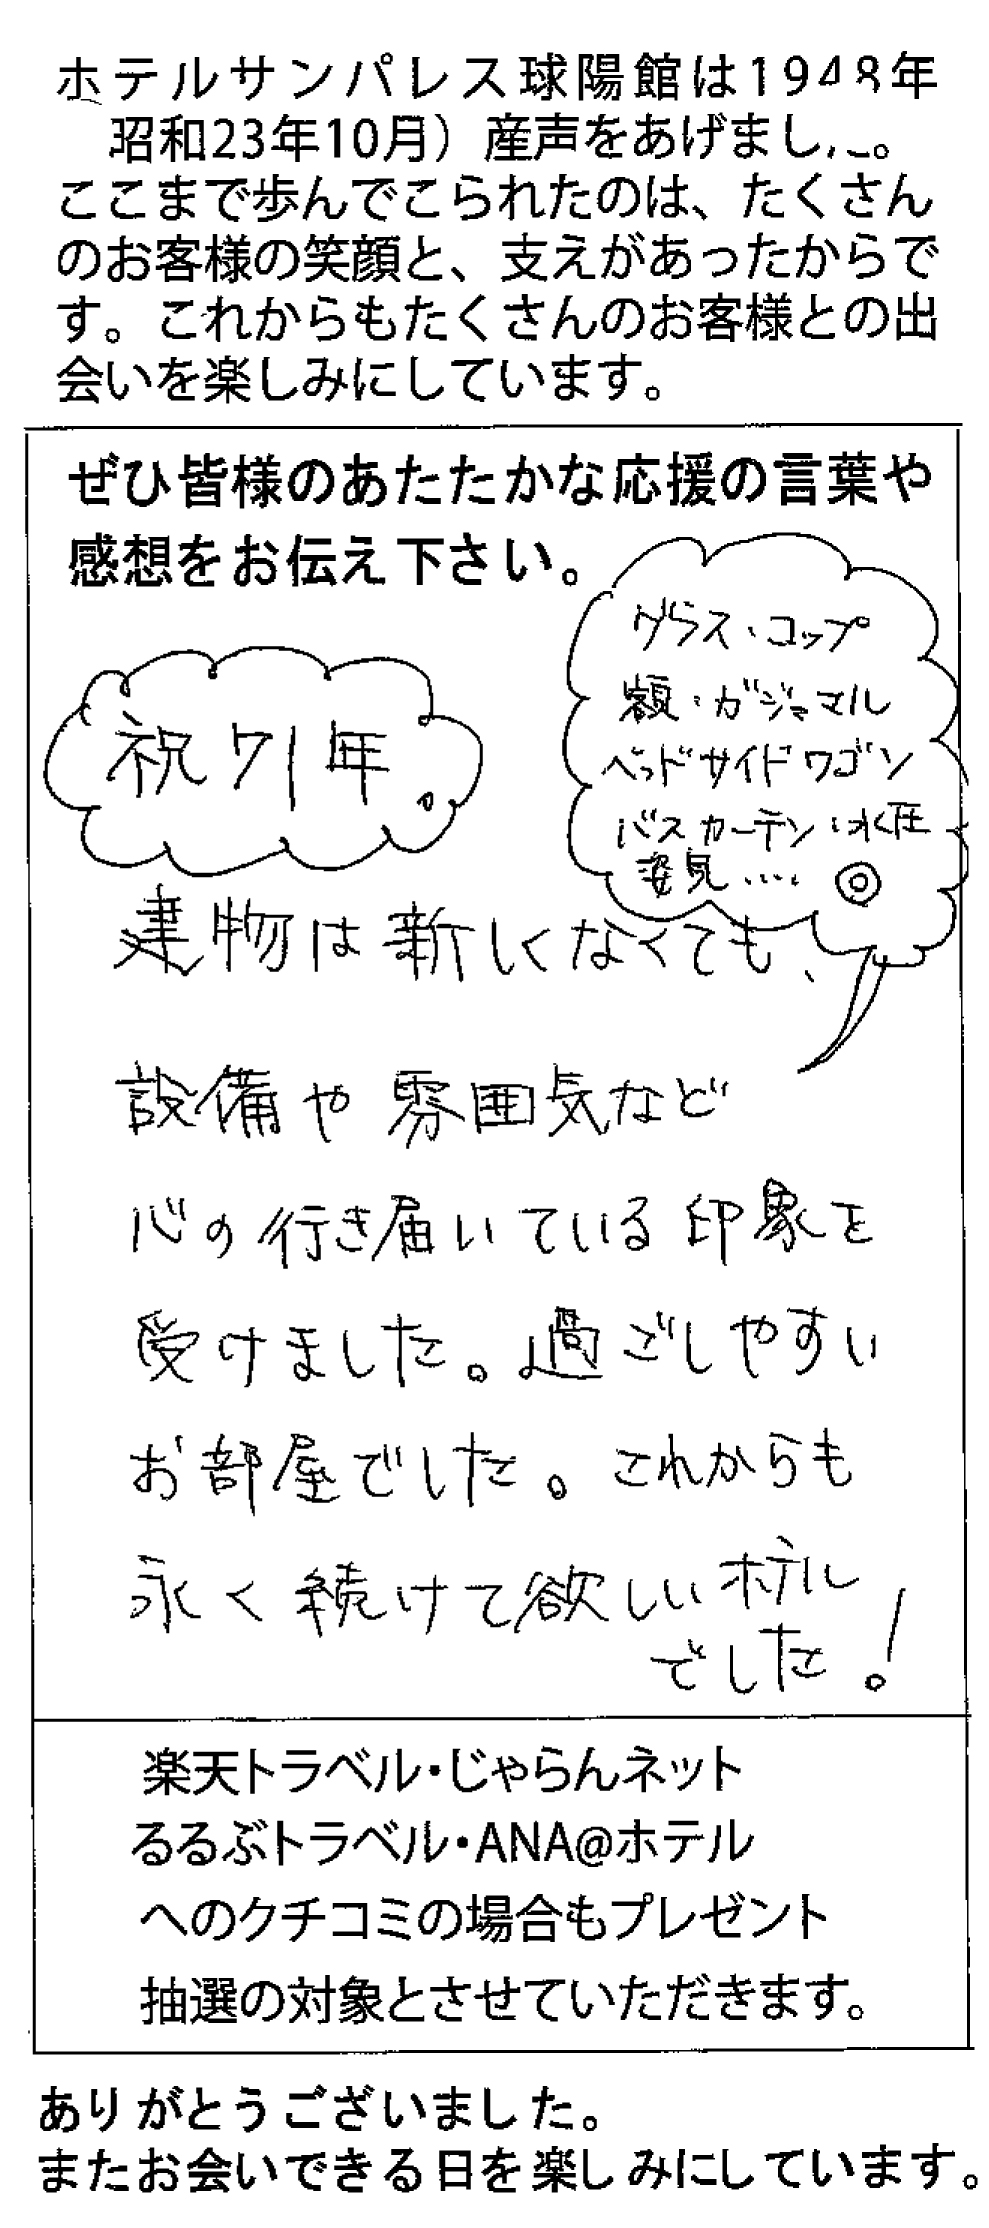 ホテルサンパレス球陽館は1948年
昭和23年10月）産声をあげました。
ここまで歩んでこられたのは、たくさん
のお客様の笑顔と、支えがあったからで
す。これからもたくさんのお客様との出
会いを楽しみにしています。
ぜひ皆様のあたたかな応援の言葉や
感想をお伝え下さい。
グラス・コップ
額・ガジュマル
ベッドサイドワゴン
バスカーテン・水圧
姿見・・・・ ◎
祝71年。
建物は新しくなくても、
設備や雰囲気など
心の行き届いている印象を
受けました。過ごしやすい
お部屋でした。これからも
永く続けて欲しいホテル
でした！
楽天トラベル・じゃらんネット
るるぶトラベル・ANA@ホテル
へのクチコミの場合もプレゼント
抽選の対象とさせていただきます。
ありがとうございました。
またお会いできる日を楽しみにしています。